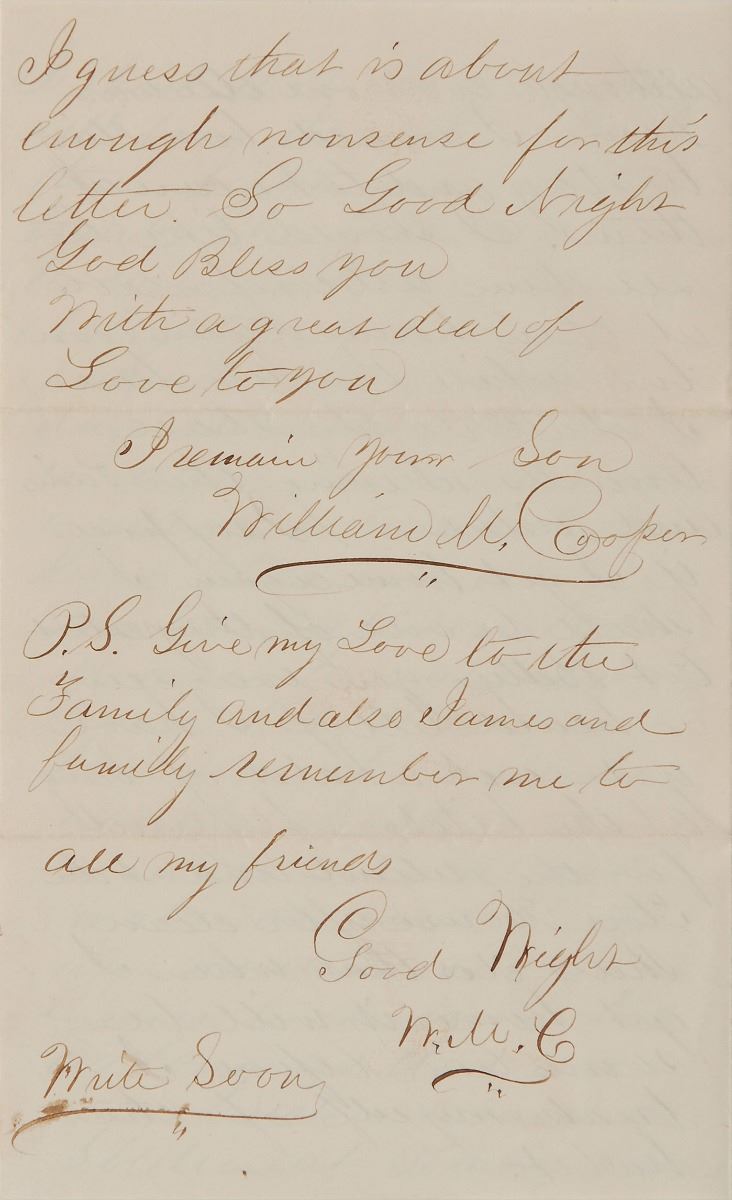 I guess that is about
enough nonsense for this
letter. So Good Night
God Bless you
With a great deal of
Love to you
I remain your Son
William M. Cooper
P.S. Give my Love to the
Family and also James and
family remember me to
all my friends
Good Night
W. M. C
Write Soon